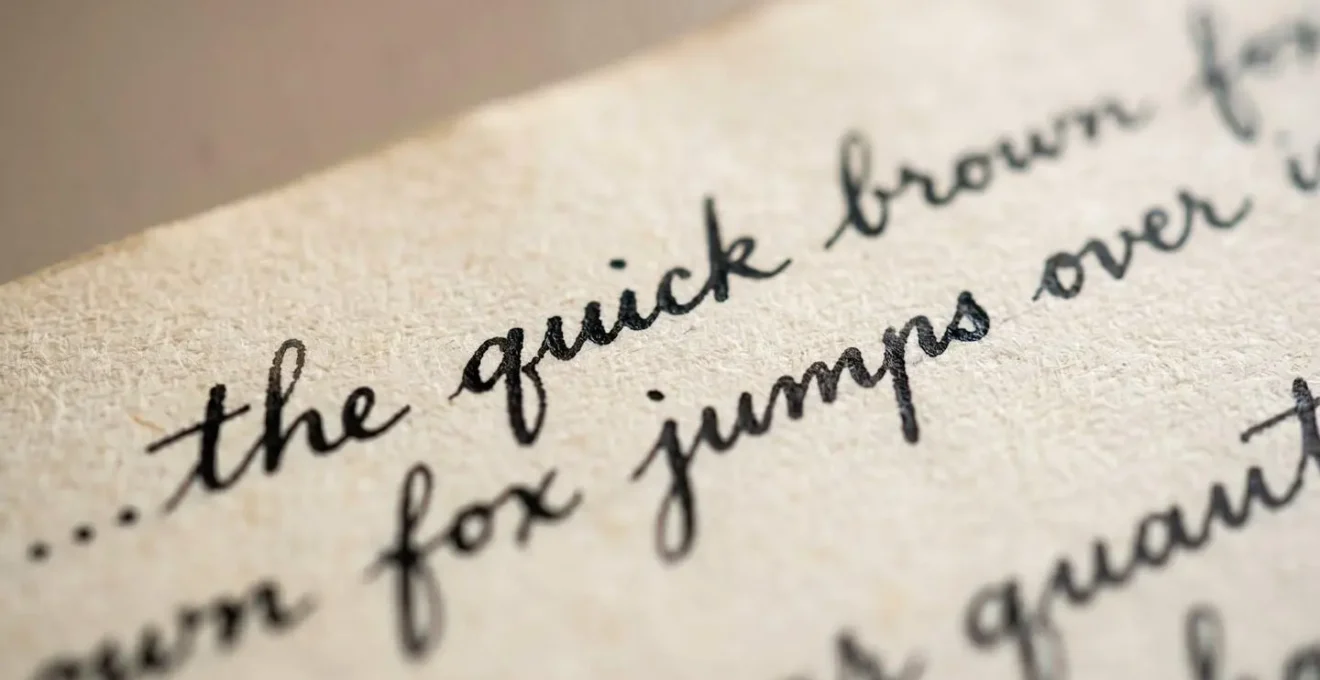 ...the quick brown fox
own fox jumps over
quant